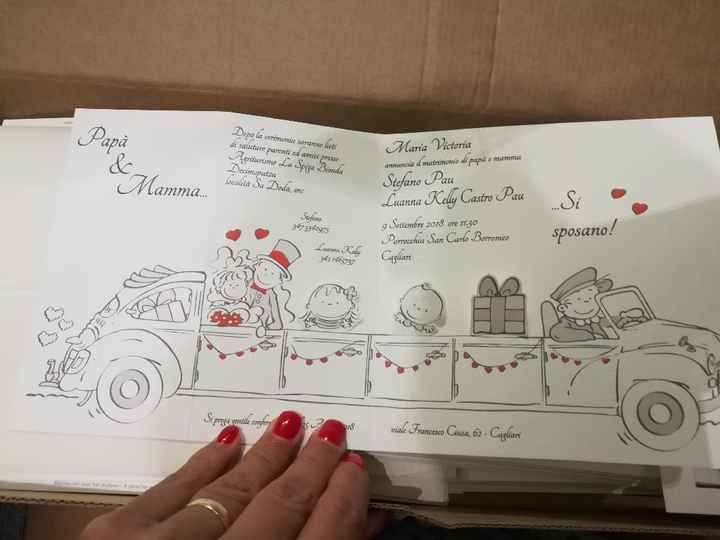 Papà
&
Mamma...
Dopo la cerimonia saranno lieti
di salutare parenti ed amici presso
Agriturismo La Spiga Bionda
Decimoputzu
località Sa Doda, snc
Stefano
Luanna Kelly
Maria Victoria
annuncia il matrimonio di papà e mamma
Stefano Pau
Luanna Kelly Castro Pau
9 Settembre 2018 ore 11,30
Parrocchia San Carlo Borromeo
Cagliari
...Si
sposano!
Si prega gentile confer
2018
viale Francesco Ciusa, 62 - Cagliari